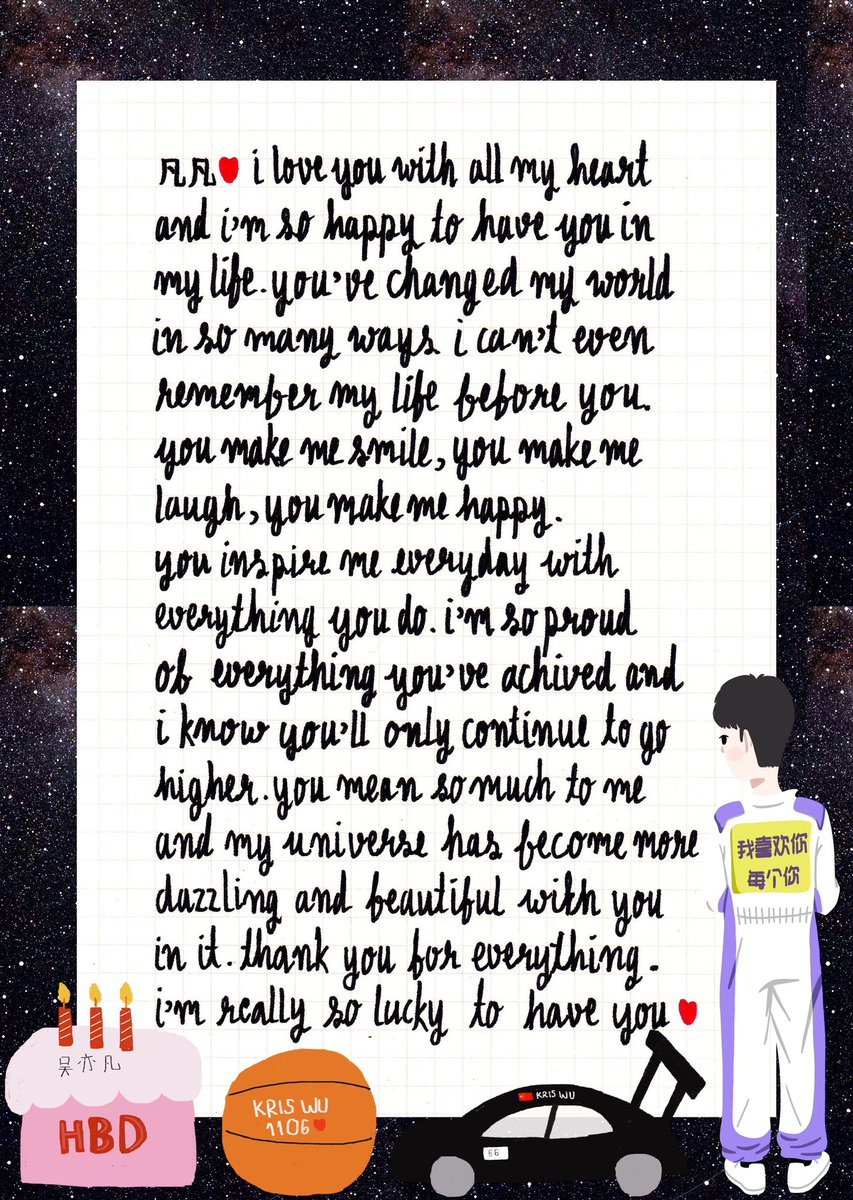 凡凡❤ i love you with all my heart
and i'm so happy to have you in
my life. you've changed my world
in so many ways i can't even
remember my life before you.
you make me smile, you make me
laugh, you make me happy.
you inspire me everyday with
everything you do. i'm so proud
of everything you've achived and
i know you'll only continue to go
higher. you mean so much to me
and my universe has become more
dazzling and beautiful with you
in it. thank you for everything.
i'm really so lucky to have you ❤
我喜欢你
每个你
吴亦凡
HBD
KRIS WU
1106❤
KRIS WU
66